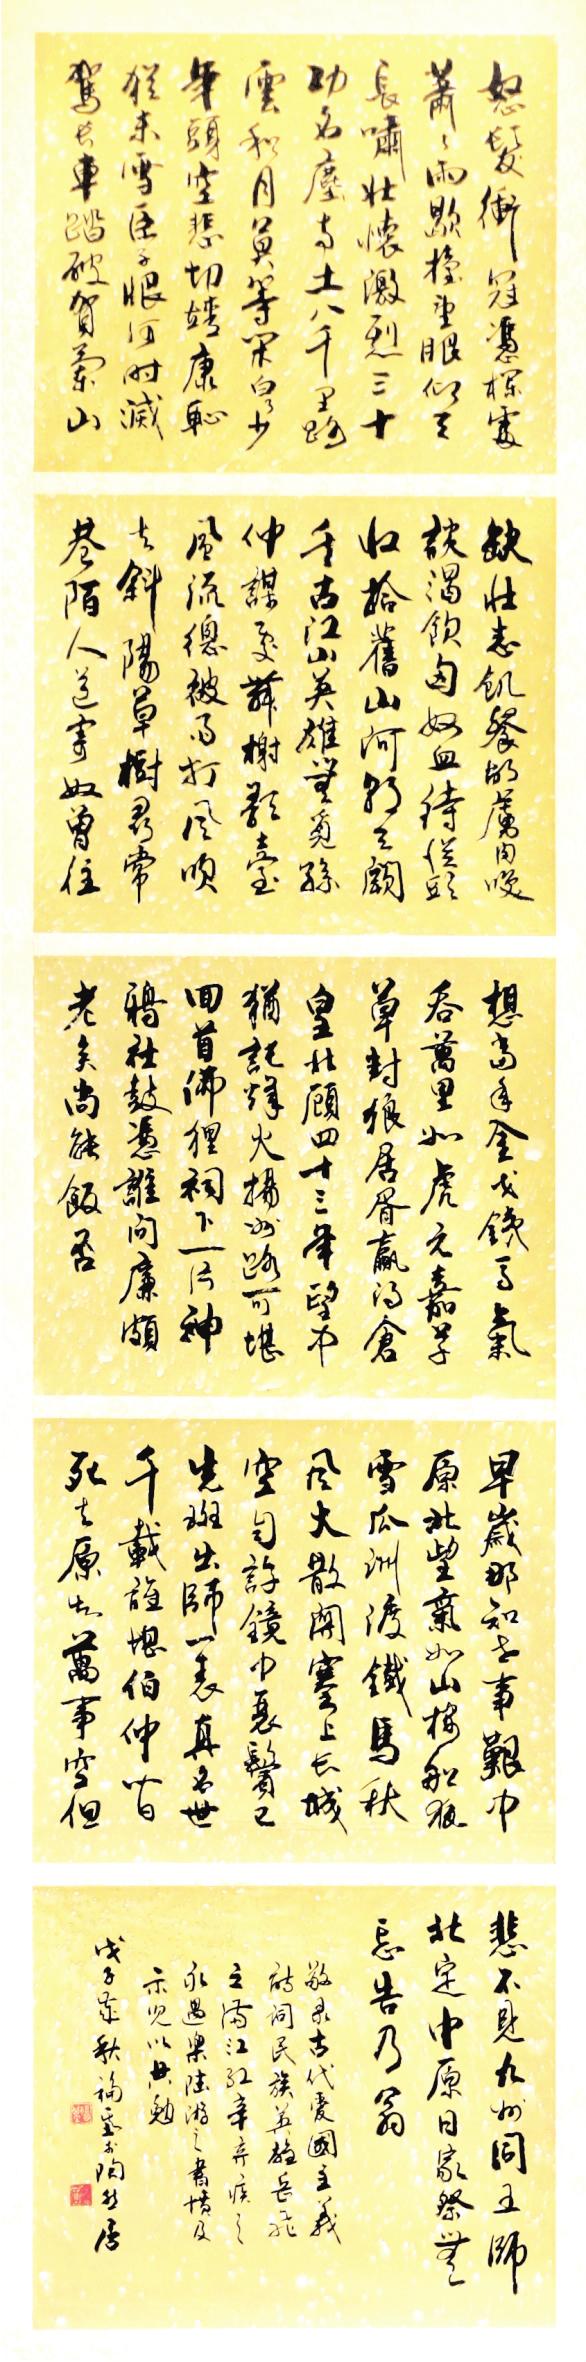 怒髮衝冠憑欄處
蕭〻雨歇擡望眼仰天
長嘯壯懷激烈三十
功名塵與土八千里路
雲和月莫等閑白了少
年頭空悲切靖康恥
猶未雪臣子恨何時滅
駕長車踏破賀蘭山
缺壯志飢餐胡虜肉笑
談渴飲匈奴血待從頭
收拾舊山河朝天闕
千古江山英雄無覓孫
仲謀處舞榭歌臺
風流總被雨打風吹
去斜陽草樹尋常
巷陌人道寄奴曾住
想當年金戈鐵馬氣
吞萬里如虎元嘉草
草封狼居胥贏得倉
皇北顧四十三年望中
猶記烽火揚州路可堪
回首佛狸祠下一片神
鴉社鼓憑誰問廉頗
老矣尚能飯否
早歲那知世事艱中
原北望氣如山樓船夜
雪瓜洲渡鐵馬秋
風大散關塞上長城
空自許鏡中衰鬢已
先斑出師一表真名世
千載誰堪伯仲間
死去原知萬事空但
悲不見九州同王師
北定中原日家祭無
忘告乃翁
敬录古代愛國主義
詩詞民族英雄岳飛
之滿江紅辛弃疾之
永遇樂陸游之書憤及
示兒以共勉
戊子 秋福 於陶然居